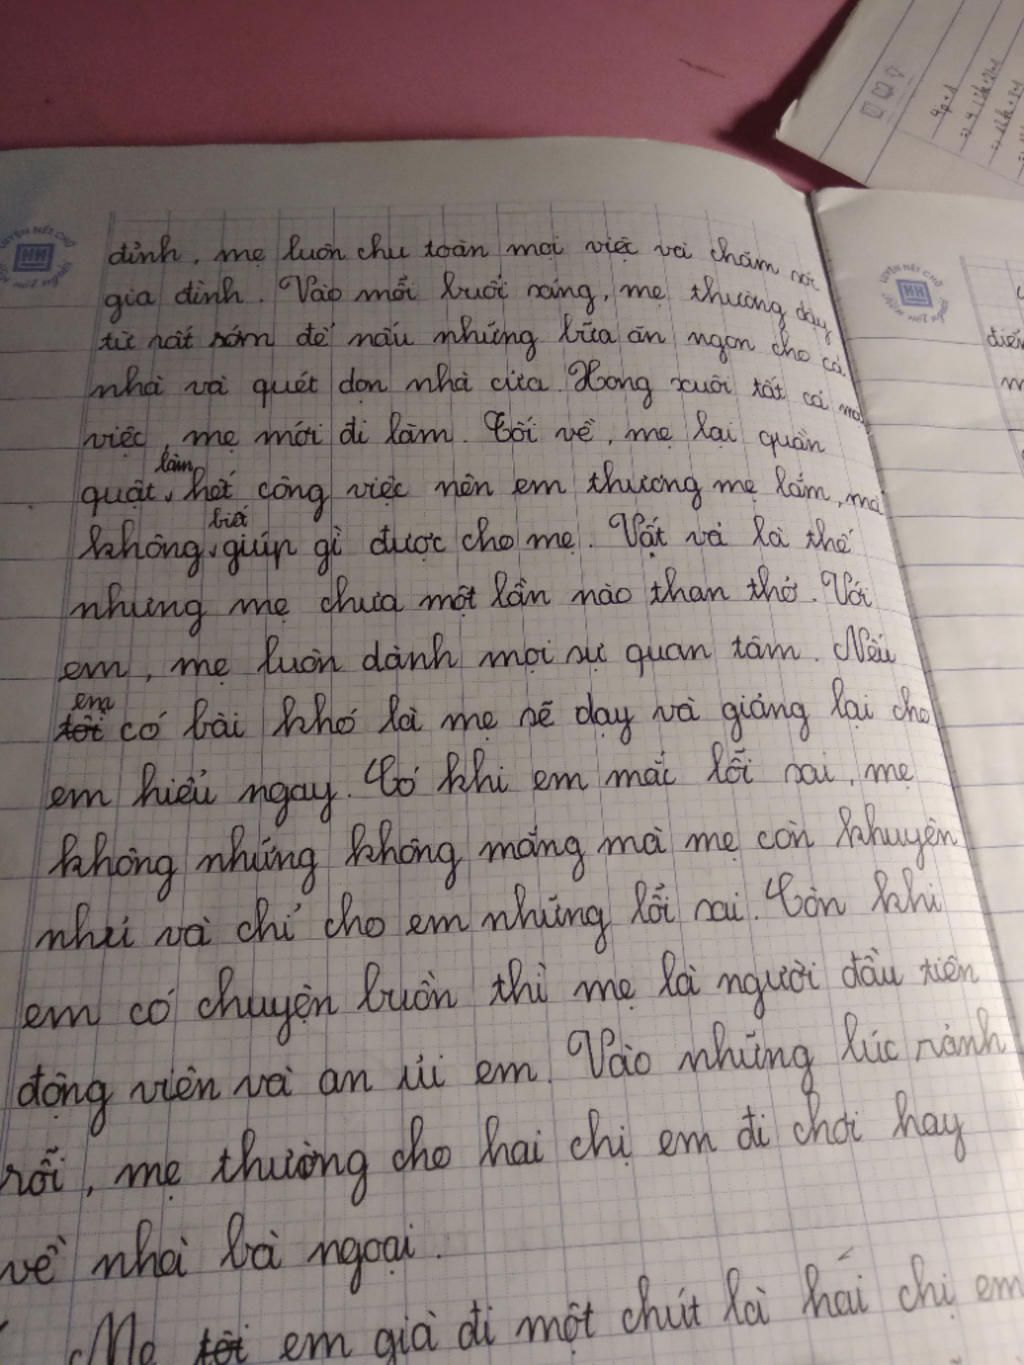 đình, mẹ luôn chu toàn mọi việc và chăm sóc
gia đình. Vào mỗi buổi sáng, mẹ thường dậy
từ rất sớm để nấu những bữa ăn ngon cho cả
nhà và quét dọn nhà cửa. Xong xuôi tất cả mọi
việc, mẹ mới đi làm. Tối về, mẹ lại quần
quật làm hết công việc nên em thương mẹ lắm, mà
không biết giúp gì được cho mẹ. Vất vả là thế
nhưng mẹ chưa một lần nào than thở. Với
em, mẹ luôn dành mọi sự quan tâm. Nếu
em có bài khó là mẹ sẽ dạy và giảng lại cho
em hiểu ngay. Có khi em mắc lỗi sai, mẹ
không những không mắng mà mẹ còn khuyên
nhủ và chỉ cho em những lỗi sai. Còn khi
em có chuyện buồn thì mẹ là người đầu tiên
động viên và an ủi em. Vào những lúc rảnh
rỗi, mẹ thường cho hai chị em đi chơi hay
về nhà bà ngoại.
Mẹ em già đi một chút là hai chị em
LUYỆN NÉT CHỮ
HH